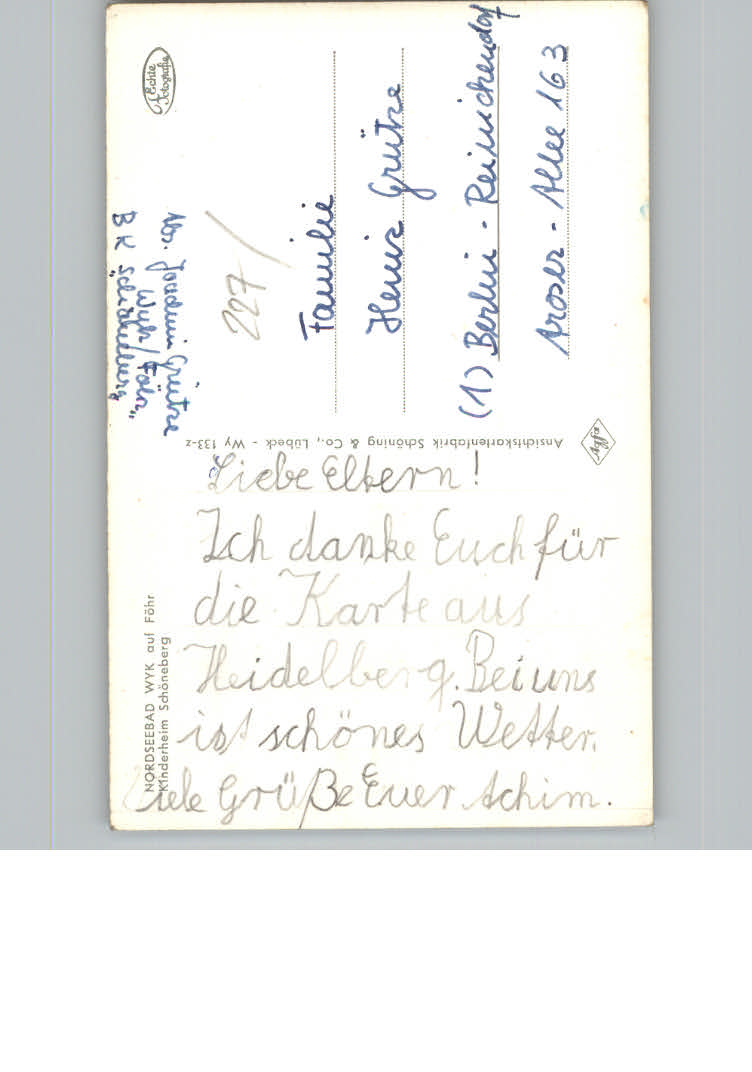 Echte
Fotografie
Abs. Joachim Grütze
Wyk/Föhr
BK "Schöneberg"
227/
Familie
Heinz Grütze
(1) Berlin - Reinickendorf
Aroser - Allee 163
Ansichtskartenfabrik Schöning & Co., Lübeck - Wy 133-z
NORDSEEBAD WYK auf Föhr
Kinderheim Schöneberg
Liebe Eltern!
Ich danke Euch für
die Karte aus
Heidelberg. Bei uns
ist schönes Wetter.
Viele Grüße Euer Achim.